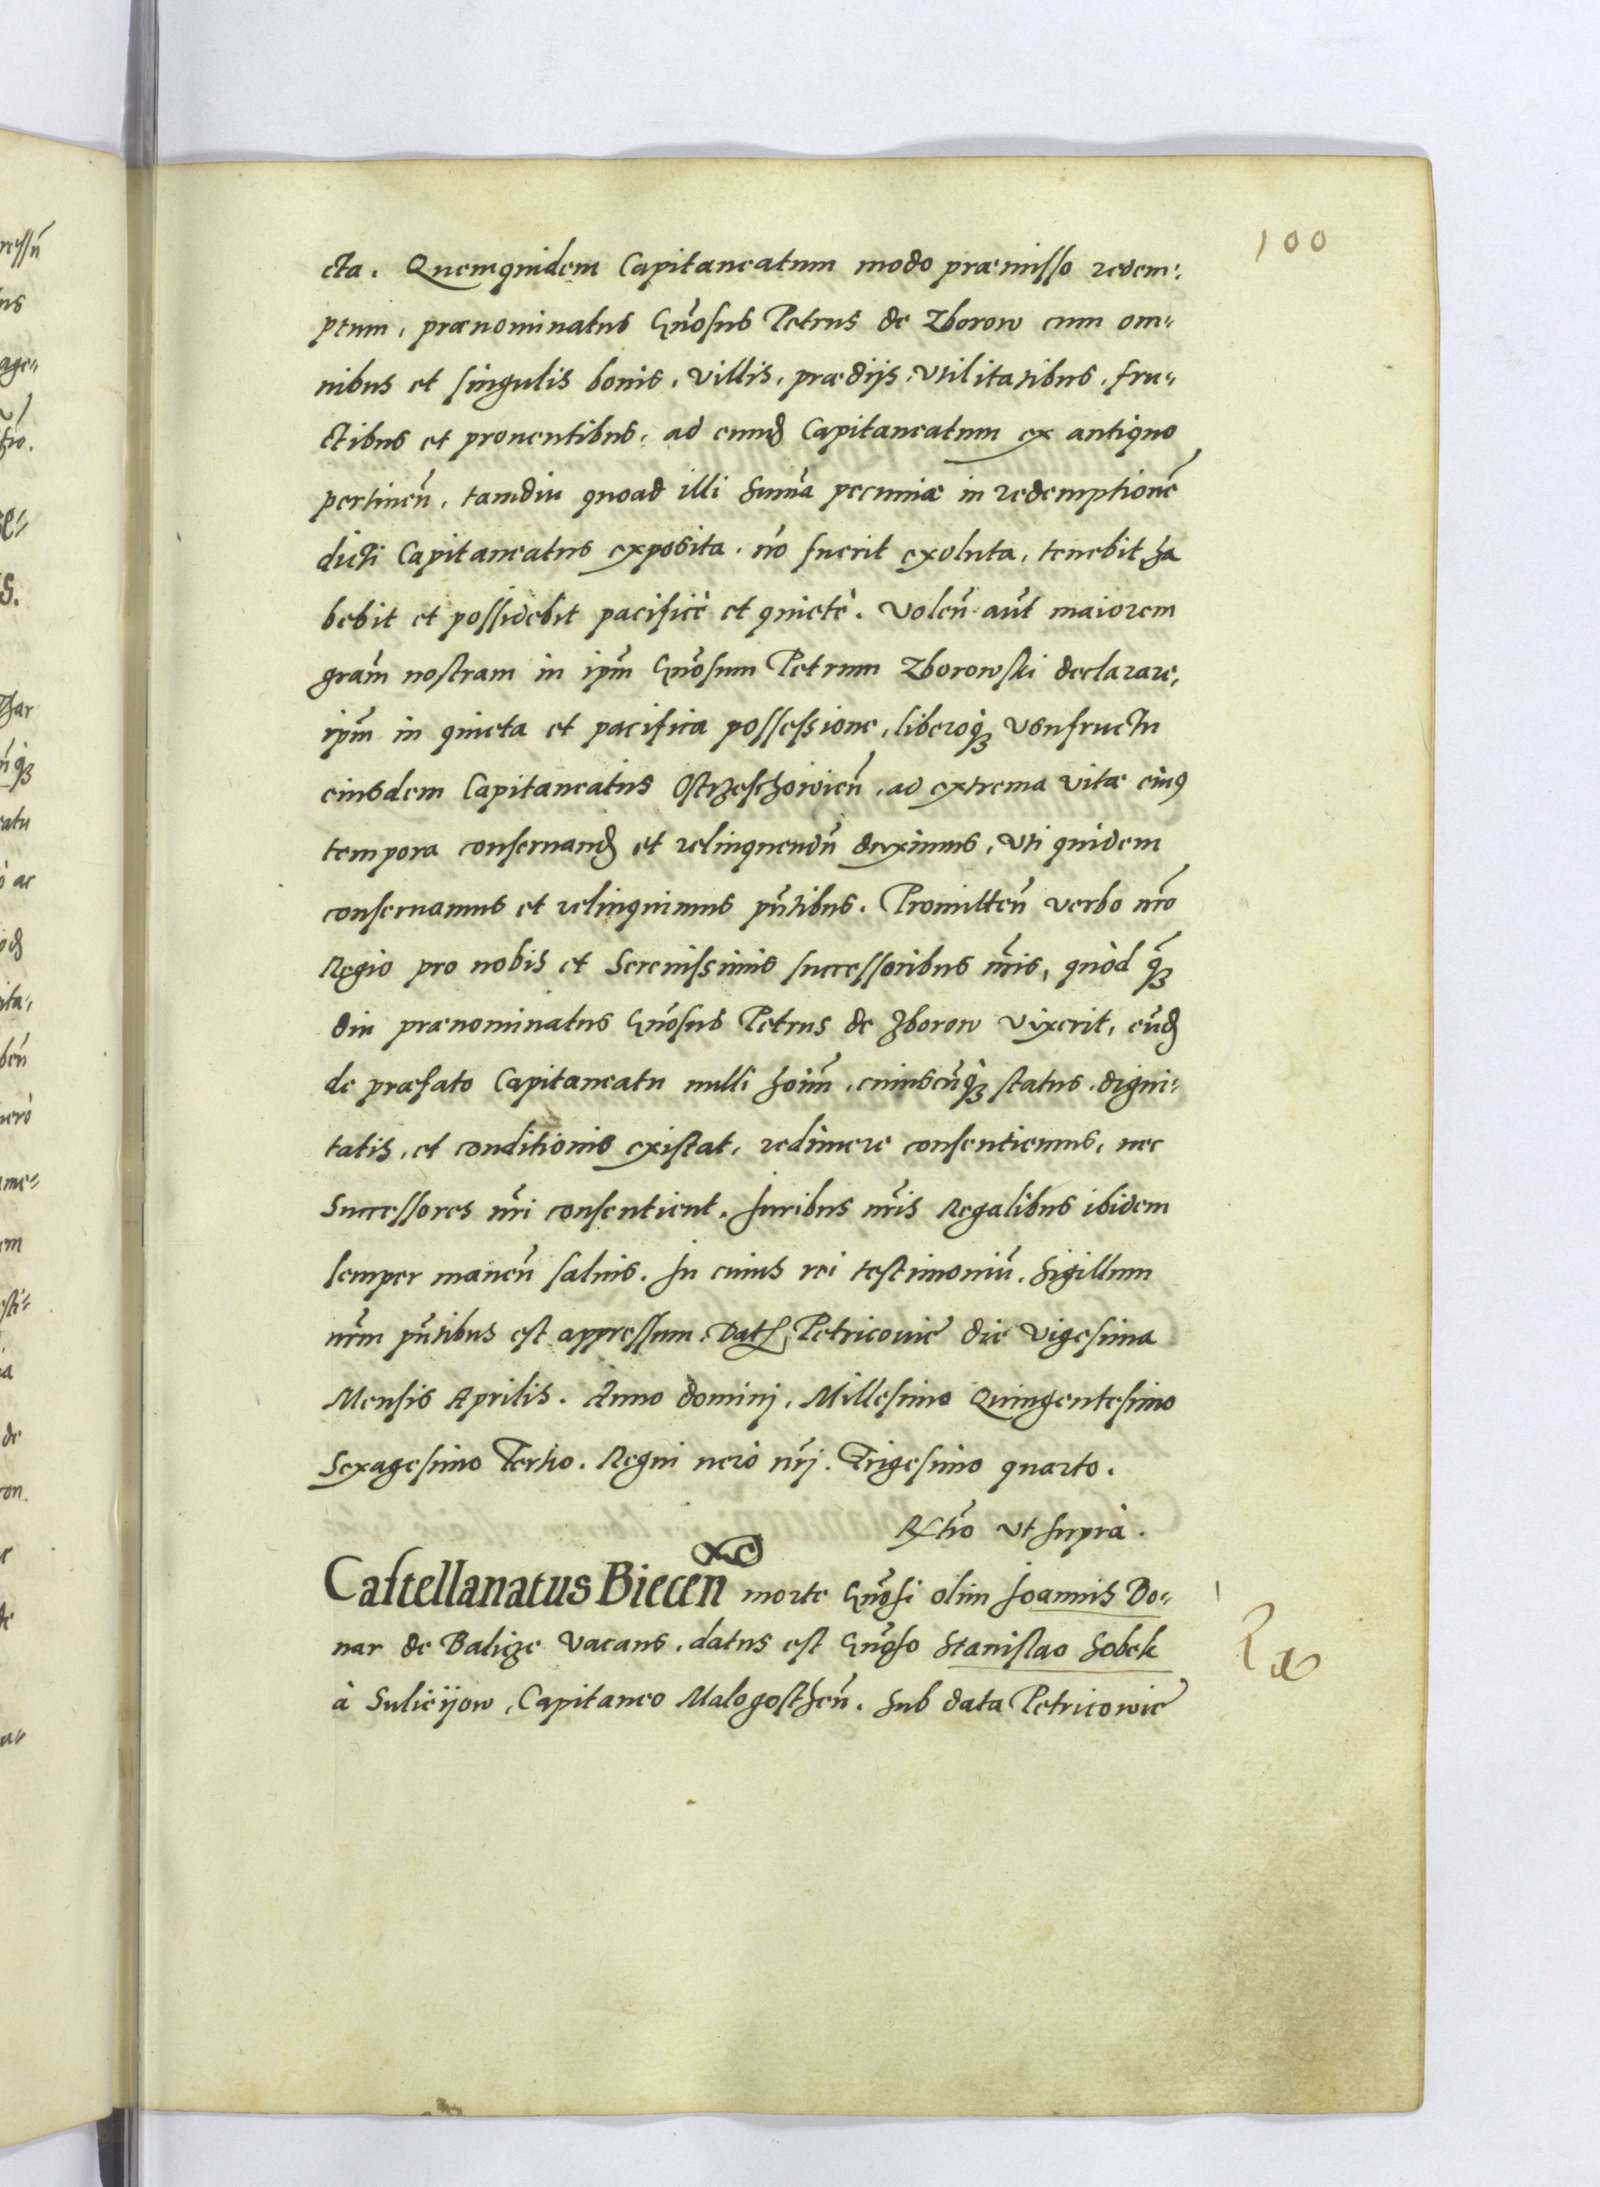 100
cta. Quemquidem Capitaneatum modo præmisso redem-
ptum, prænominatus Gnosus Petrus de Zborow cum om-
nibus et singulis bonis, villis, prædijs, vtilitatibus, fru-
ctibus et prouentibus, ad eund Capitaneatum ex antiquo
pertinen̄, tamdiu quoad illi sum̄a pecuniæ in redemptionē
dicti Capitaneatus exposita, nō fuerit exoluta, tenebit, ha
bebit et possidebit pacificè et quietè. Volen̄ aūt maiorem
gram̄ nostram in ipm̄ Gnosum Petrum Zborowski declarare,
ipm̄ in quieta et pacifica possessione, liberoq́ʒ vsufructu
eiusdem Capitaneatus Ostrzeschowien̄, ad extrema vitæ eius
tempora conseruand et relinquendū duximus, vti quidem
conseruamus et relinquimus pn̄tibus. Promitten̄ verbo nr̄o
Regio pro nobis et Serenissimis successoribus nr̄is, quòd q̄ʒ
diu prænominatus Gnosus Petrus de Zborow vixerit, eūd
de præfato Capitaneatu nulli hoīm, cuiuscūq́ʒ status, digni-
tatis, et conditionis existat, redimere consentiemus, nec
Successores nr̄i consentient. Iuribus nr̄is Regalibus ibidem
semper manen̄ saluis. In cuius rei testimoniū, Sigillum
nr̄m pn̄tibus est appressum. Dat Petricouiē die vigesima
Mensis Aprilis. Anno dominj, Millesimo Quingentesimo
Sexagesimo Tertio. Regni uerò nr̄j. Trigesimo quarto.
Rctio vt suprà.
Castellanatus Biecen̄ morte Gnosi olim Joannis Bo-
nar de Balicze vacans, datus est Gnoso Stanislao Sobek
à Suliéijow, Capitaneo Malogosthen̄. Sub data Petricowiē